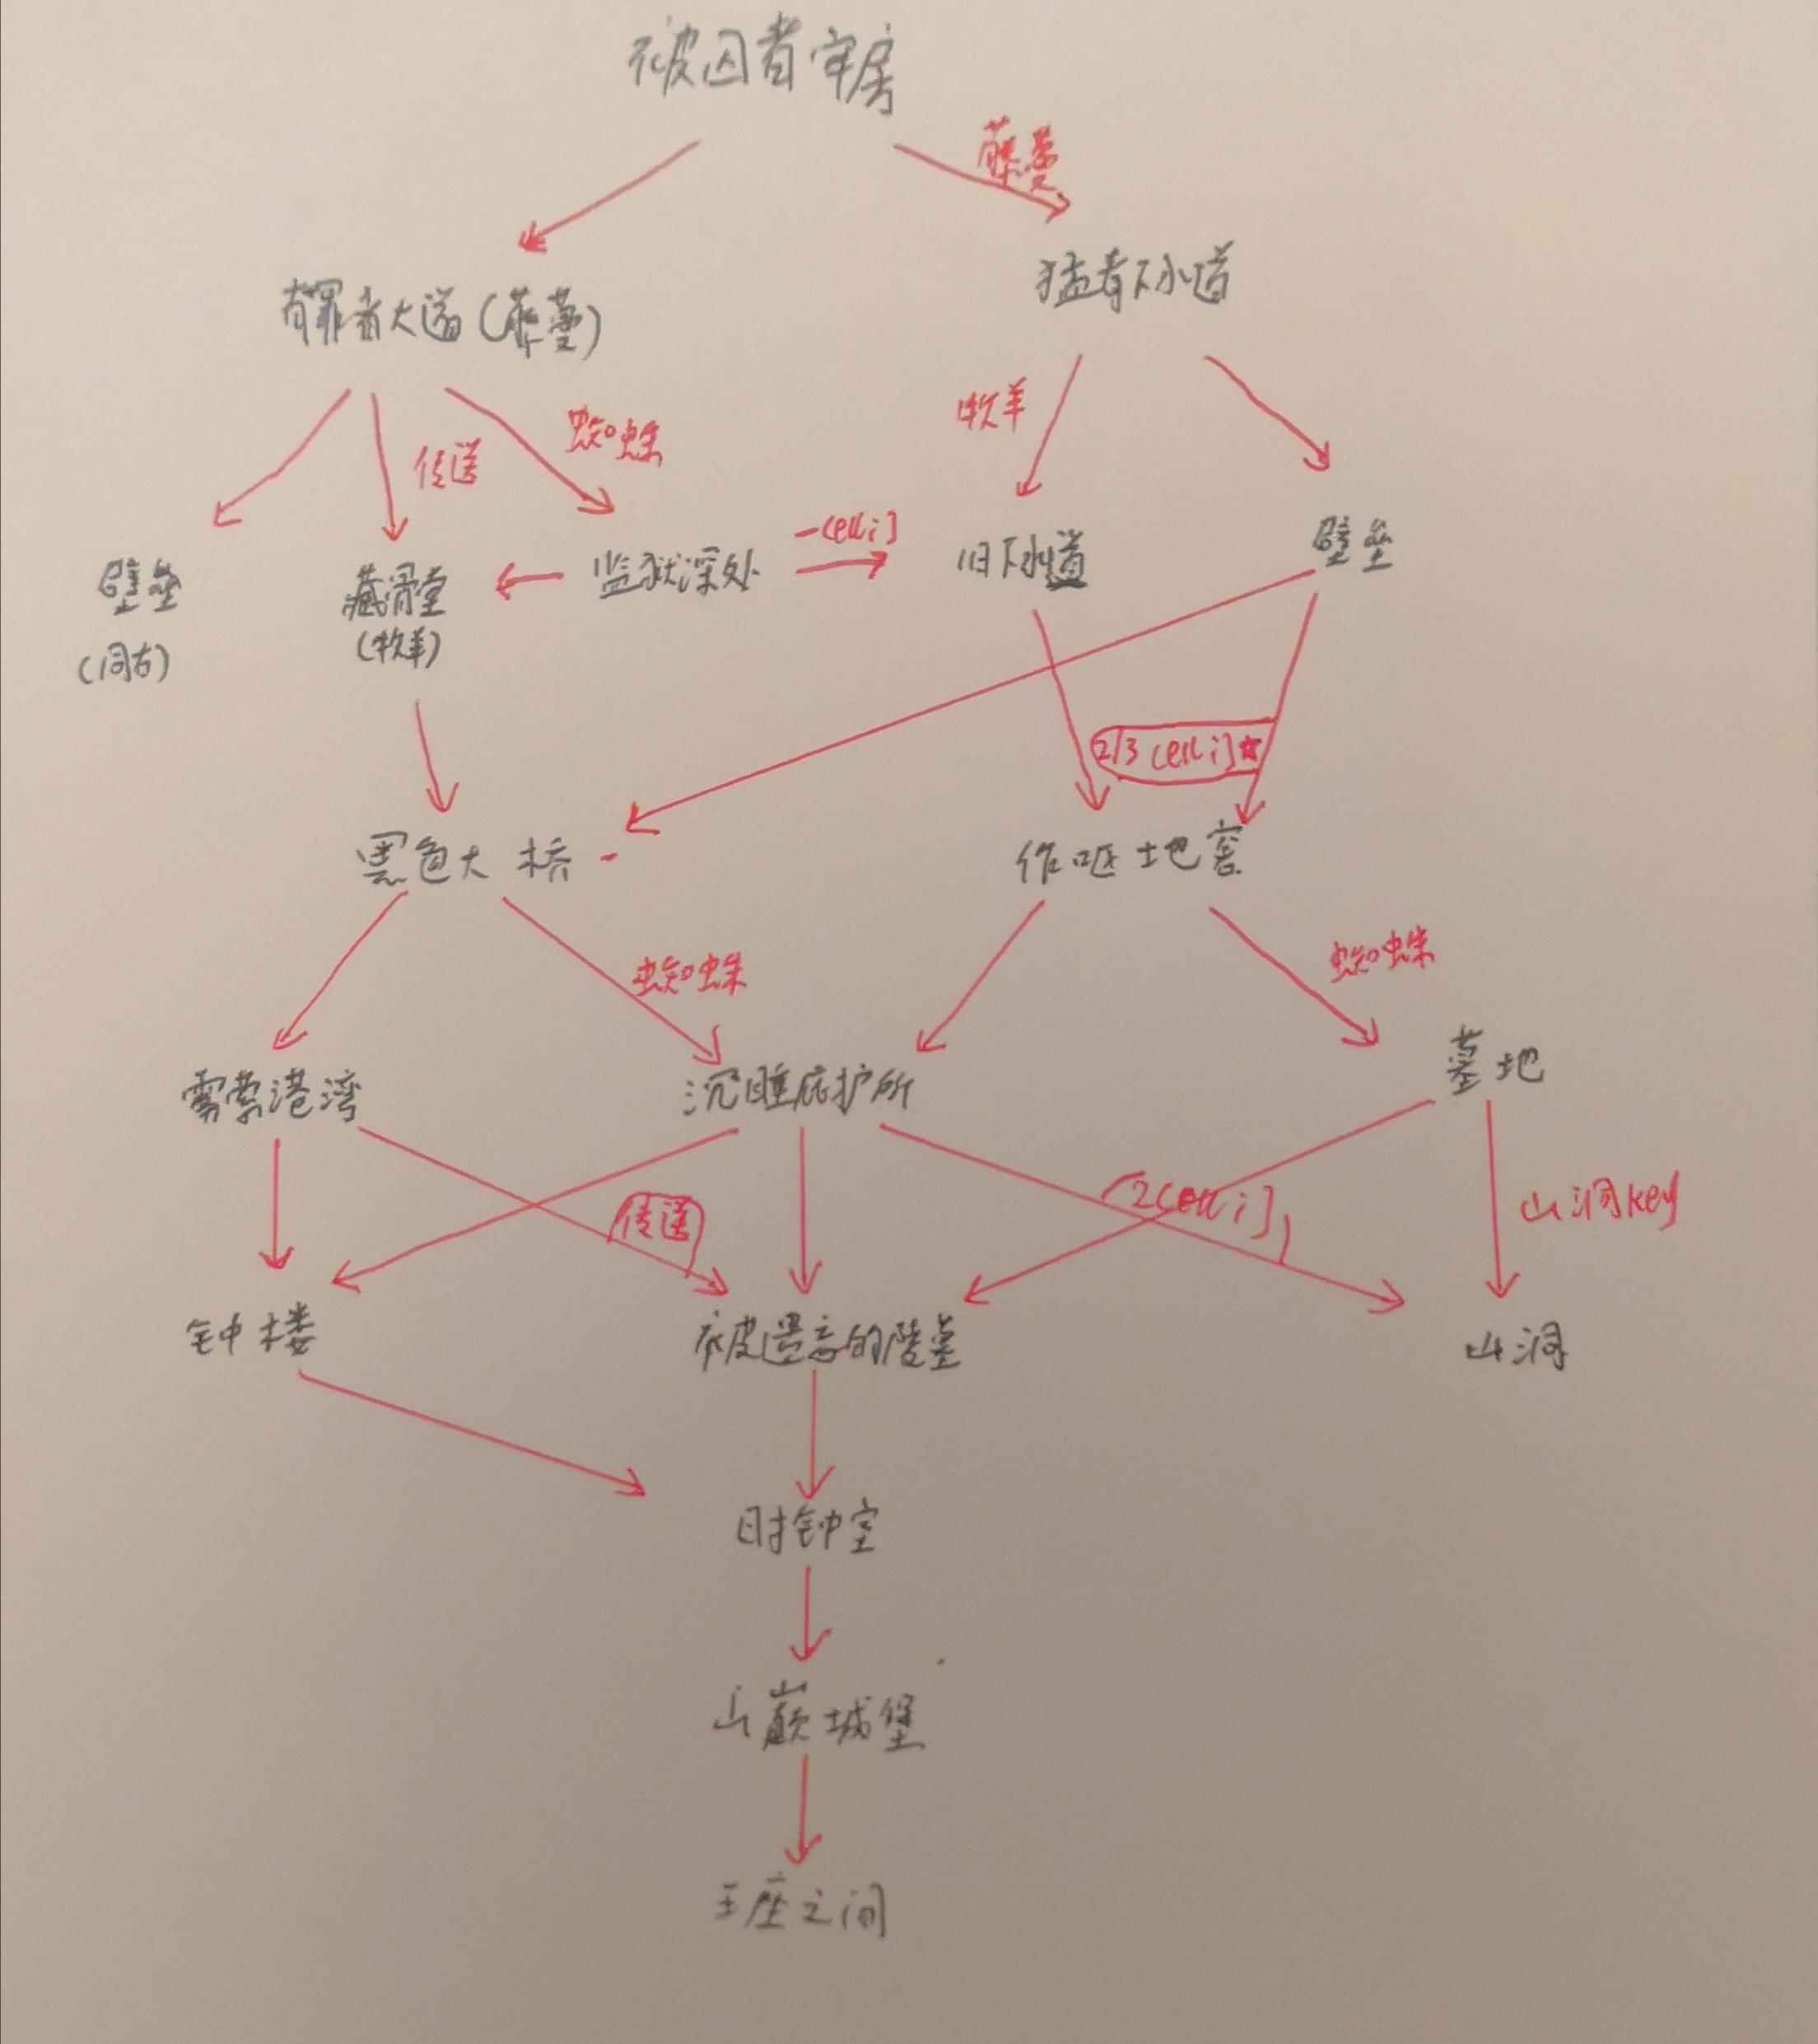 被囚者牢房
藤蔓
有罪者大道(藤蔓)
猛者下水道
传送
蜘蛛
牧羊
壁垒
(同右)
藏骨堂
(牧羊)
监狱深处
旧下水道
壁垒
2/3 cell
黑色大桥
作呕地窖
蜘蛛
蜘蛛
雾霭港湾
沉睡庇护所
墓地
传送
2cell
山洞key
钟楼
被遗忘的陵墓
山洞
时钟室
山巅城堡
王座之间